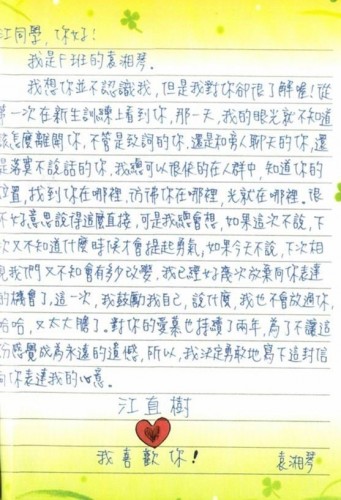 江同學,你好!
我是F班的袁湘琴。
我想你並不認識我,但是我對你卻很了解喔!從
第一次在新生訓練上看到你,那一天,我的眼光就不知道
該怎麼離開你,不管是致詞的你,還是和旁人聊天的你,還
是落寞不說話的你,我總可以很快的在人群中,知道你的
位置,找到你在哪裡,彷彿你在哪裡,光就在哪裡。很
不好意思說得這麼直接,可是我總會想,如果這次不說,下
次又不知道什麼時候才會提起勇氣,如果今天不說,下次相
見我們又不知會有多少改變,我已經好幾次放棄向你表達
的機會了,這一次,我鼓勵我自己,說什麼,我也不會放過你,
哈哈,又太大膽了。對你的愛慕也持續了兩年,為了不讓這
份感覺成為永遠的遺憾,所以,我決定勇敢地寫下這封信
向你表達我的心意。
江直樹
我喜歡你!
袁湘琴